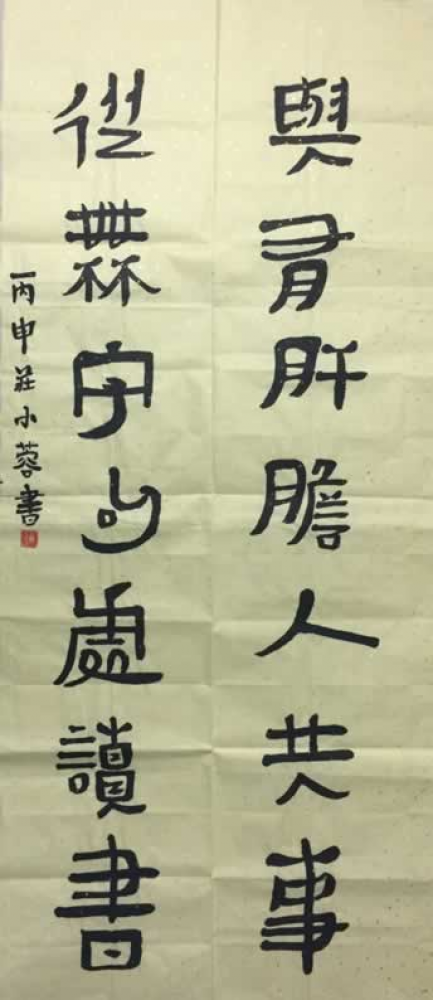 與有肝膽人共事
從無字句處讀書
丙申莊小蓉書